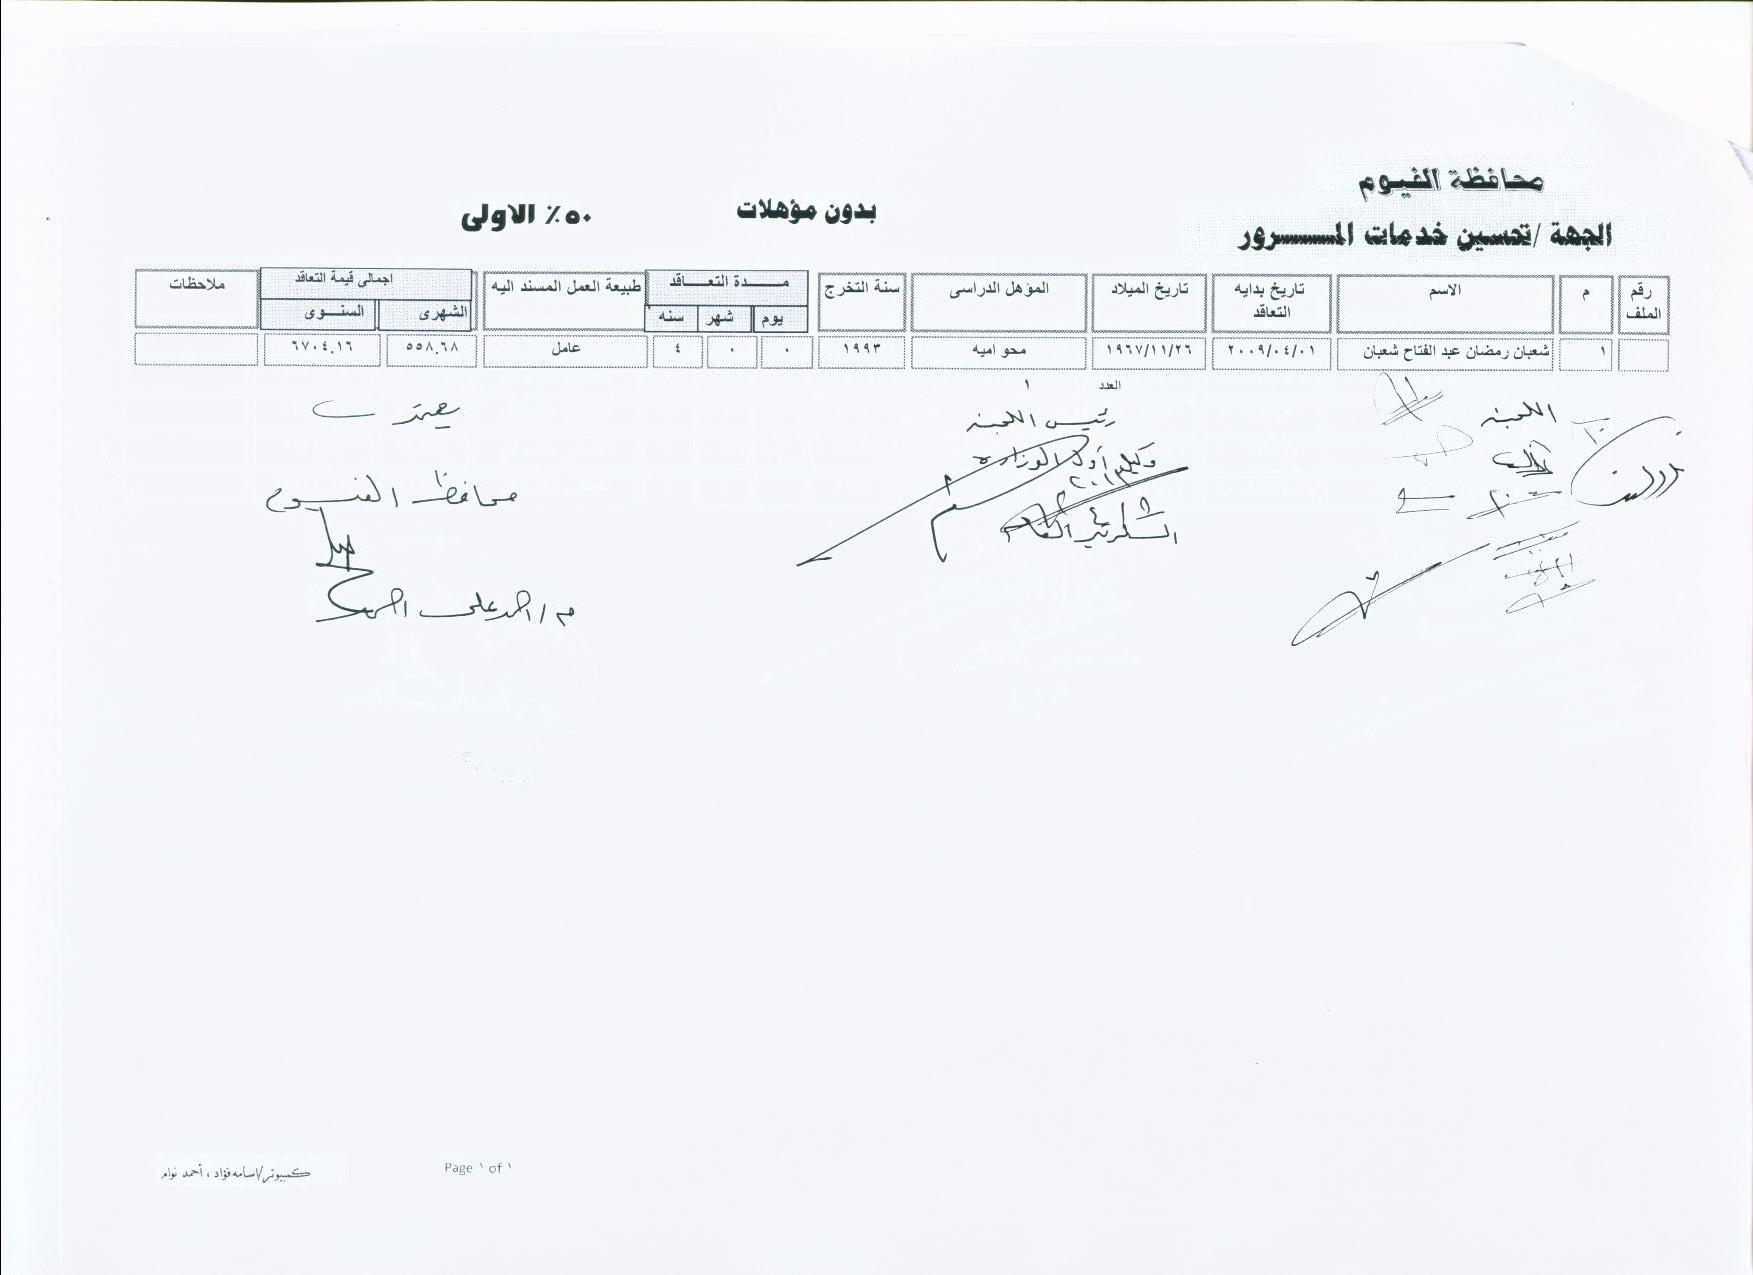 محافظة الفيوم
الجهة /تحسين خدمات المـــــرور
بدون مؤهلات
٥٠٪ الاولى
رقم الملف
م
الاسم
تاريخ بدايه التعاقد
تاريخ الميلاد
المؤهل الدراسى
سنة التخرج
مـــــدة التعـــاقد
يوم
شهر
سنه
طبيعة العمل المسند اليه
اجمالى قيمة التعاقد
الشهرى
السنــوى
ملاحظات
١
شعبان رمضان عبد الفتاح شعبان
٢٠٠٩/٠٤/٠١
١٩٦٧/١١/٢٦
محو اميه
١٩٩٣
٠
٠
٤
عامل
٥٥٨.٦٨
٦٧٠٤.١٦
العدد ١
اللجنة
رئيس اللجنة
وكيل أول الوزارة
السكرتير العام
يعتمد
محافظ الفيوم
م/ احمد على احمد
Page ١ of ١
كمبيوتر/اسامه فؤاد ، أحمد نوام